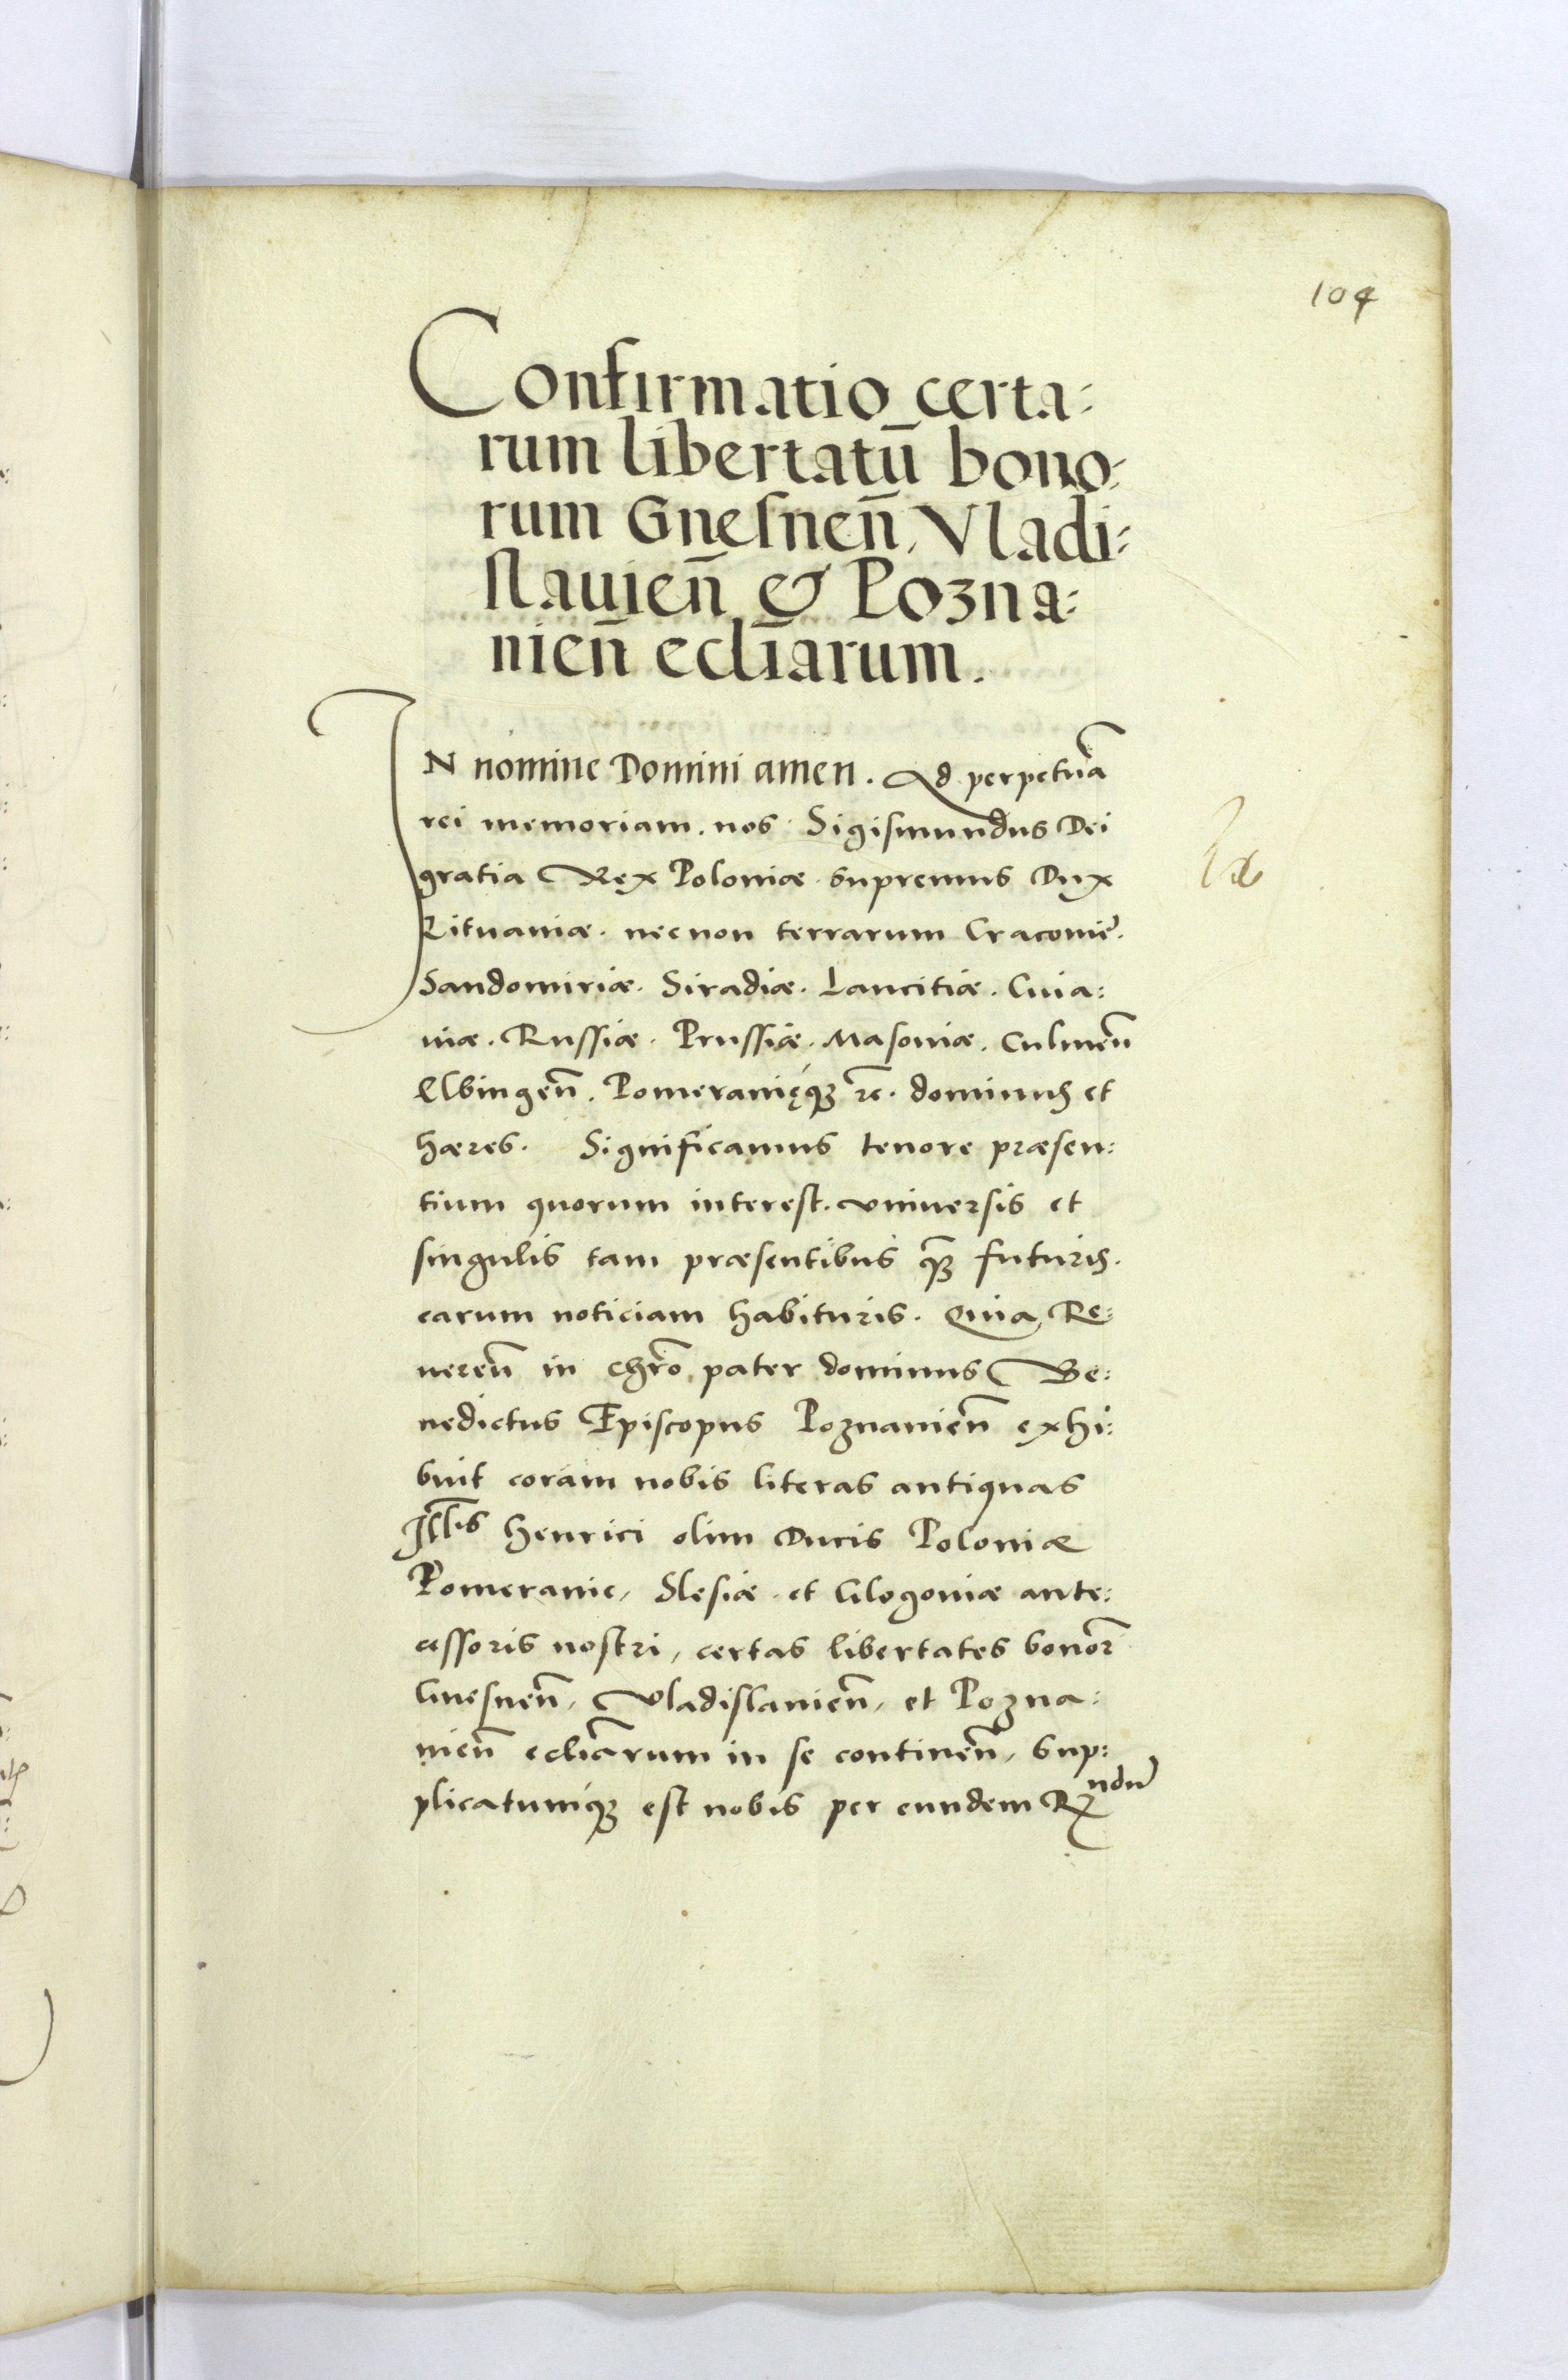 104
Confirmatio certa:
rum libertatū bono:
rum Gneſnen̄, Vladi:
ſlauien̄ & Pozna:
nien̄ eccl̄iarum.
IN nomine Domini amen. Ad perpetuā
rei memoriam. nos Sigiſmundus Dei
gratia Rex Poloniæ. Supremus Dux
Lituaniæ. necnon terrarum Cracouiē.
Sandomiriæ. Siradiæ. Lancitiæ. Cuia:
uiæ. Ruſſiæ. Pruſſiæ. Maſouiæ. Culmen̄
Elbingen̄. Pomeranięqꝫ ꝛc̄. dominus et
hæres. Significamus tenore præsen:
tium quorum intereſt. vniuerſis et
ſingulis tam præſentibus q̄ꝫ futuris.
earum noticiam habituris. Quia Re:
ueren̄ in chr̄o pater dominus Be:
nedictus Epiſcopus Poznanien̄ exhi:
buit coram nobis literas antiquas
Ill̄is Henrici olim Ducis Poloniæ
Pomeranie, Sleſiæ. et Glogouiæ ante:
ceſſoris noſtri, certas libertates bonoꝝ
Gneſnen̄, Vladiſlauien̄, et Pozna:
nien̄ eccliārum in ſe continen̄, Sup:
plicatumqꝫ eſt nobis per eundem Rndū